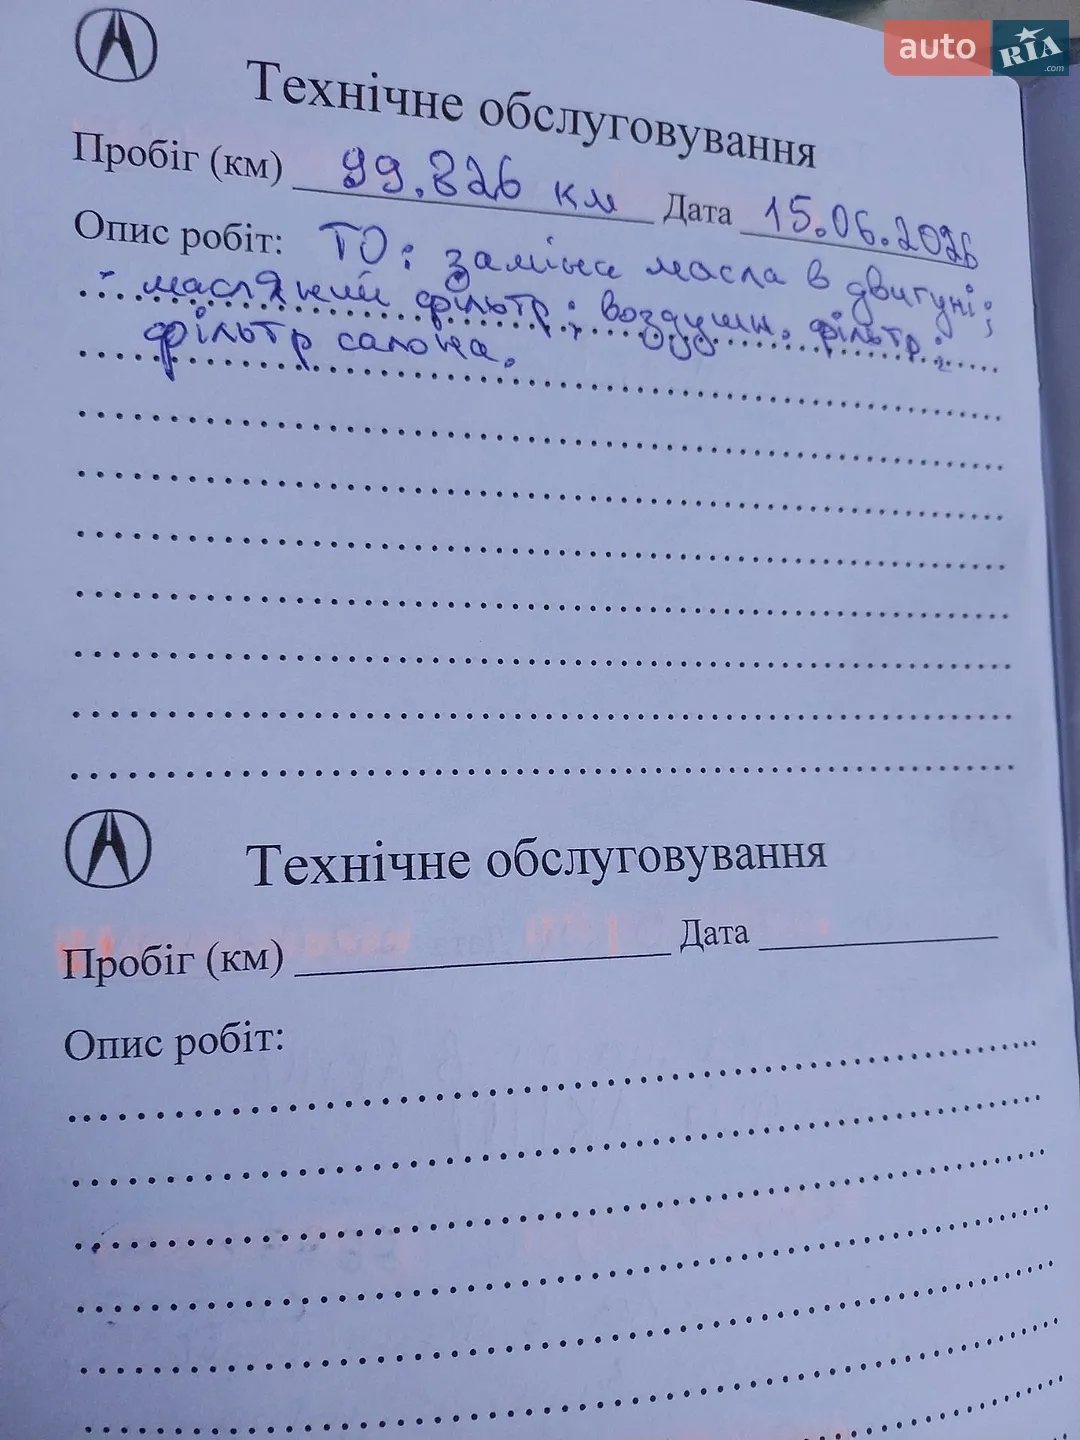 auto RIA .com
Технічне обслуговування
Пробіг (км) 99.826 км Дата 15.06.2026
Опис робіт: ТО: заміна масла в двигуні;
масляний фільтр; воздушн. фільтр;
фільтр салона.
Технічне обслуговування
Пробіг (км) Дата
Опис робіт: